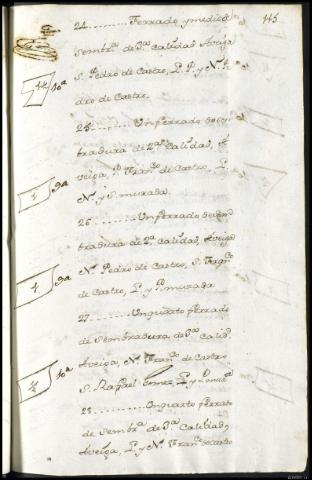 115
24......... Ferrado y medio de
sembra. de 3a calidad, Aveiga
S. Pedro de Castro, L. P. y N. Pe
dro de Castro.
10a
25......... Un ferrado de sem
bradura de 2a calidad, A
veiga, P. Franco. de Castro, L.
N. y S. murada.
9a
26......... Un ferrado de sem
bradura de 2a calidad, Aveiga
N. Pedro de Castro, S. Franco.
de Castro, L. y P. murada
9a
27......... Un quarto ferrado
de Sembradura, de 3a calid.
Aveiga, N. Franco. de Castro
S. Rafael L. y P.
10a
28......... Un quarto ferrado
de Sembra. de 3a Calidad,
Aveiga, L. y N. Franco. de Castro